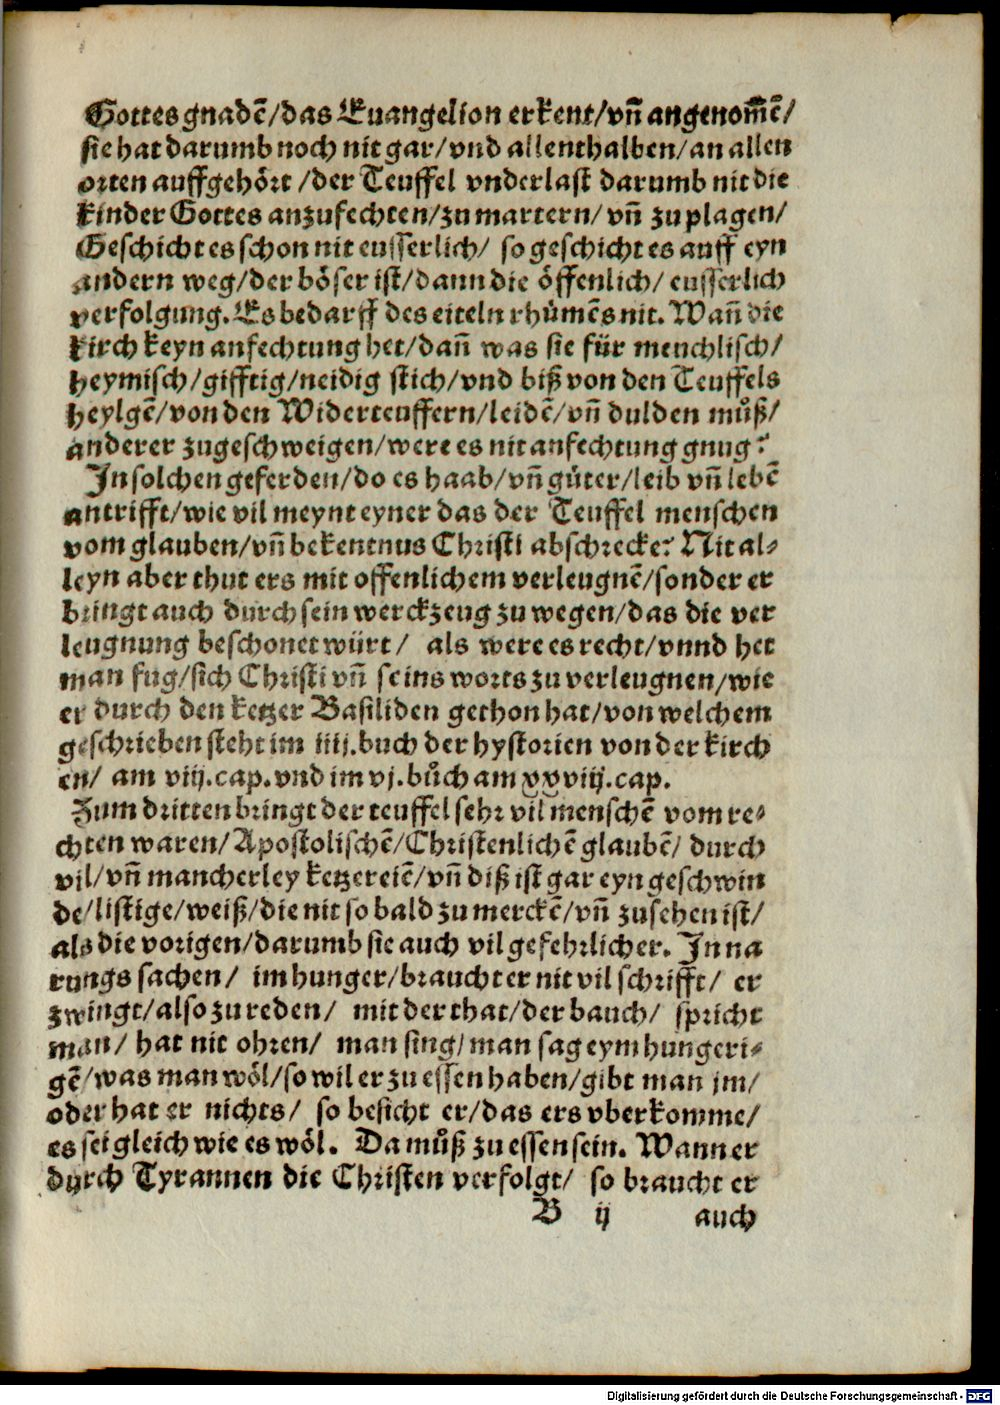 Gottes gnadē/das Euangelion erkent/vn̄ angenom̄ē/
sie hat darumb noch nit gar/vnd allenthalben/an allen
orten auffgehört/der Teuffel vnderlast darumb nit die
kinder Gottes anzufechten/zu martern/vn̄ zu plagen/
Geschicht es schon nit eusserlich/ so geschicht es auff eyn
andern weg/der böser ist/dann die öffenlich/ eusserlich
verfolgung. Es bedarff des eiteln rhůmēs nit. Wan̄ die
kirch keyn anfechtung het/dan̄ was sie für meuchlisch/
heymisch/gifftig/neidig stich/vnd biß von den Teuffels
heylgē/von den Widerteuffern/leidē/vn̄ dulden můß/
anderer zugeschweigen/were es nit anfechtung gnug?
In solchen geferden/do es haab/vn̄ güter/leib vn̄ lebē
antrifft/wie vil meynt eyner das der Teuffel menschen
vom glauben/vn̄ bekentnus Christi abschrecke? Nit al⸗
leyn aber thut ers mit offenlichem verleugnē/sonder er
bringt auch durch sein werckzeug zu wegen/das die ver
leugnung beschonet würt/ als were es recht/vnnd het
man fug/sich Christi vn̄ seins worts zu verleugnen/wie
er durch den ketzer Basiliden gethon hat/von welchem
geschrieben steht im iiij.buch der hystorien von der kirch
en/ am viij.cap.vnd im vj.bůch am xxviij.cap.
Zum dritten bringt der teuffel sehr vil menschē vom re⸗
chten waren/Apostolischē/Christenlichē glaubē/ durch
vil/vn̄ mancherley ketzereiē/vn̄ diß ist gar eyn geschwin
de/listige/weiß/die nit so bald zu merckē/vn̄ zusehen ist/
als die vorigen/darumb sie auch vil gefehrlicher. In na
rungs sachen/ im hunger/braucht er nit vil schrifft/ er
zwingt/also zu reden/ mit der that/der bauch/ spricht
man/ hat nit ohren/ man sing/man sag eym hungeri⸗
gē/was man wöl/so wil er zu essen haben/gibt man jm/
oder hat er nichts/ so besicht er/das ers vberkomme/
es sei gleich wie es wöl. Da můß zu essen sein. Wann er
durch Tyrannen die Christen verfolgt/ so braucht er
B ij auch
Digitalisierung gefördert durch die Deutsche Forschungsgemeinschaft - DFG